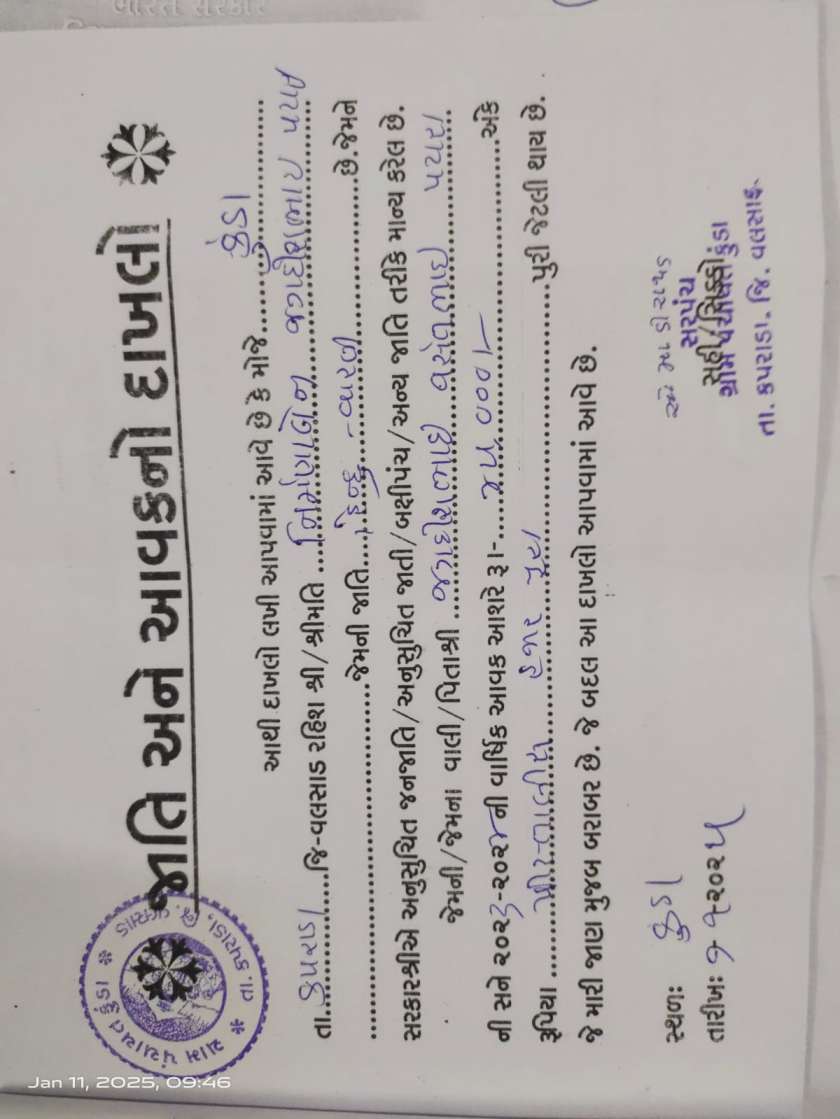 ભારત સરકાર
જાતિ અને આવકનો દાખલો
ગ્રામ પંચાયત કુંડા * તા. કપરાડા, જિ. વલસાડ *
આથી દાખલો લખી આપવામાં આવે છે કે મોજે.....કુંડા.....
તા...કપરાડા...જિ-વલસાડ રહિશ શ્રી/શ્રીમતિ ...નિર્મળાબેન જગદીશભાઈ
.....જેમની જાતિ...હિન્દુ - વારલી.....છે.જેમને
સરકારશ્રીએ અનુસુચિત જનજાતિ/અનુસુચિત જાતી/બક્ષીપંચ/અન્ય જાતિ તરીકે માન્ય કરેલ છે.
જેમની/જેમના વાલી/પિતાશ્રી ...જગદીશભાઈ
ની સને ૨૦૨૩-૨૦૨૪ની વાર્ષિક આવક આશરે રૂા-....૪૫,૦૦૦/-.....અંકે
રૂપિયા ....પીસ્તાલીસ હજાર પુરા.....પુરી જેટલી થાય છે.
જે મારી જાણ મુજબ બરાબર છે. જે બદલ આ દાખલો આપવામાં આવે છે.
સ્થળ: કુંડા
તારીખ: ૬-૧-૨૦૨૫
સરપંચ
સહી/સિક્કો
ગ્રામ પંચાયત કુંડા
તા. કપરાડા. જિ. વલસાડ.
Jan 11, 2025, 09:46